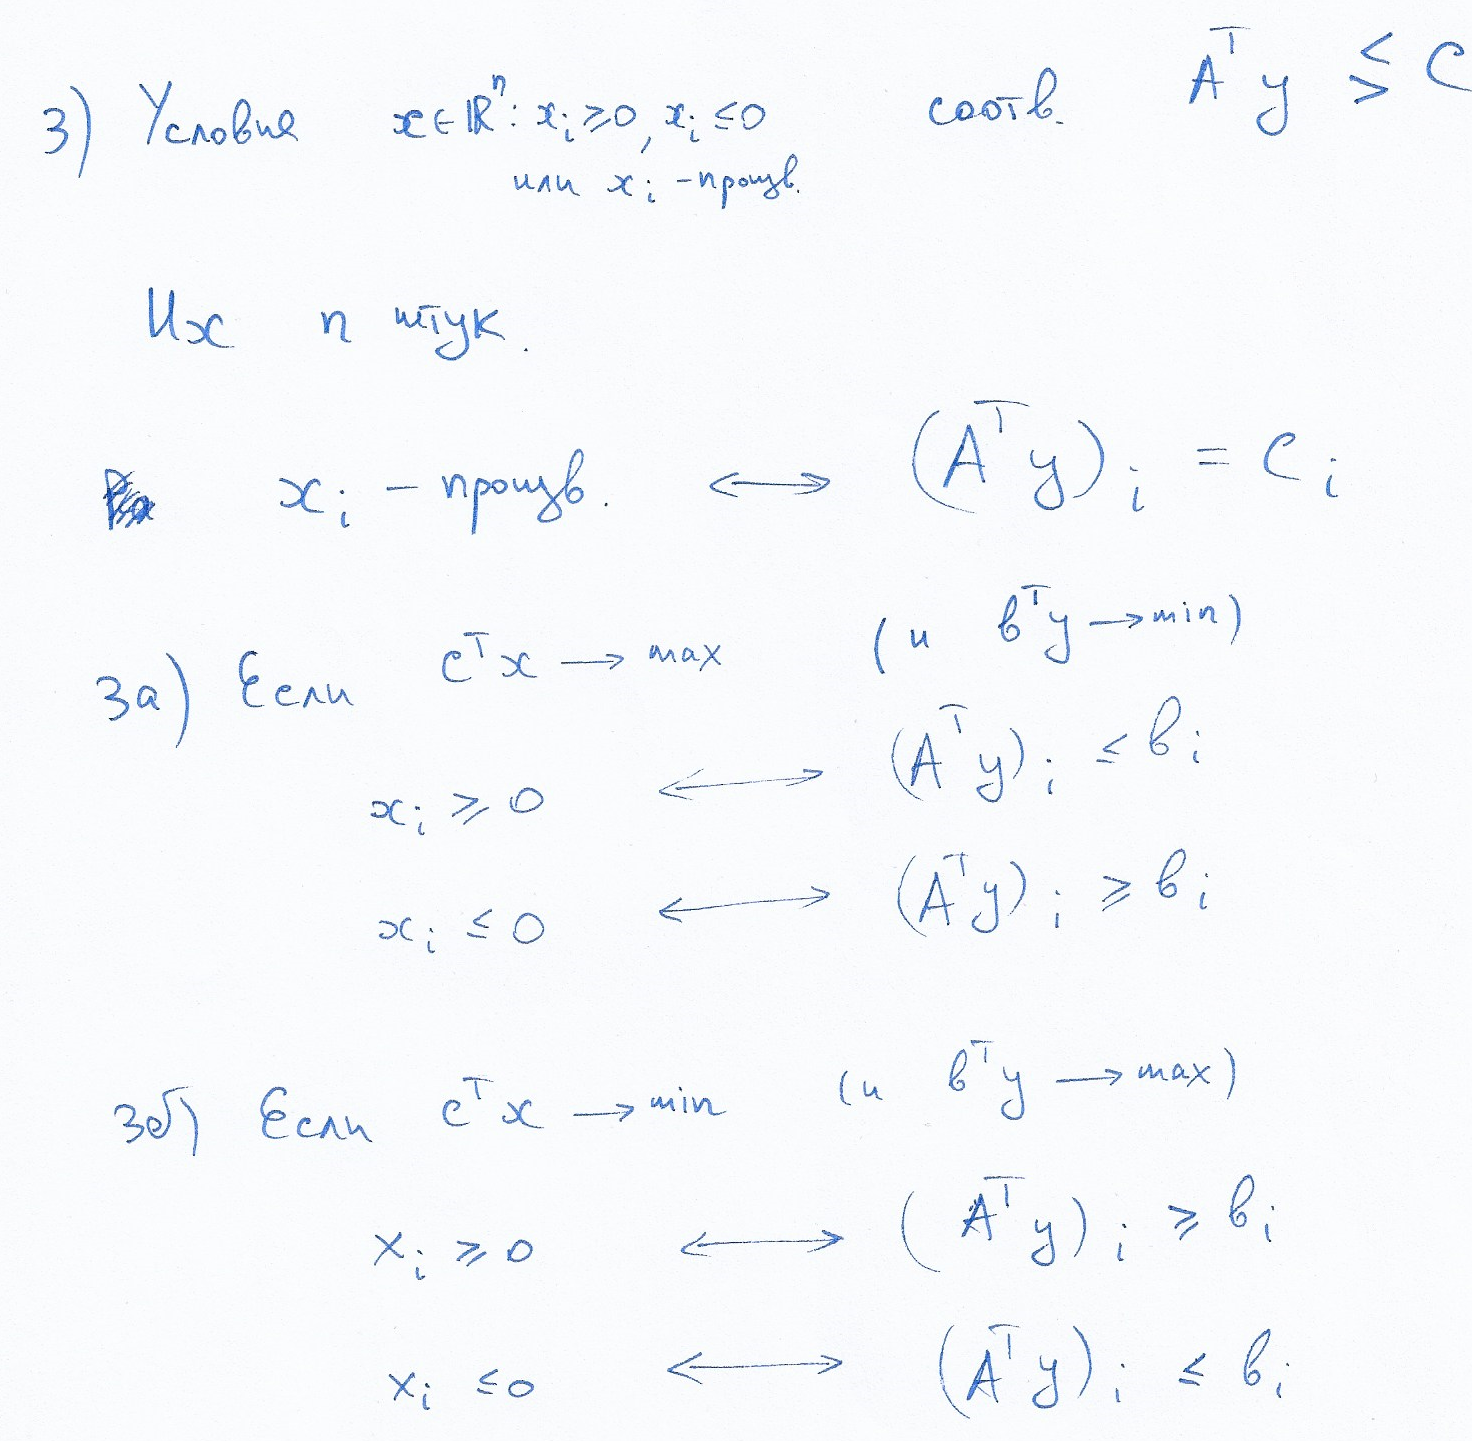 3) Условия x ∈ ℝⁿ: xᵢ ⩾ 0, xᵢ ≤ 0 соотв. Aᵀy ≤ ≥ c
или xᵢ – произв.
Их n штук.
xᵢ – произв. ⟷ (Aᵀy)ᵢ = cᵢ
3а) Если cᵀx → max (и вᵀy → min)
xᵢ ⩾ 0 ⟷ (Aᵀy)ᵢ ≤ вᵢ
xᵢ ≤ 0 ⟷ (Aᵀy)ᵢ ⩾ вᵢ
3б) Если cᵀx → min (и вᵀy → max)
xᵢ ⩾ 0 ⟷ (Aᵀy)ᵢ ⩾ вᵢ
xᵢ ≤ 0 ⟷ (Aᵀy)ᵢ ≤ вᵢ